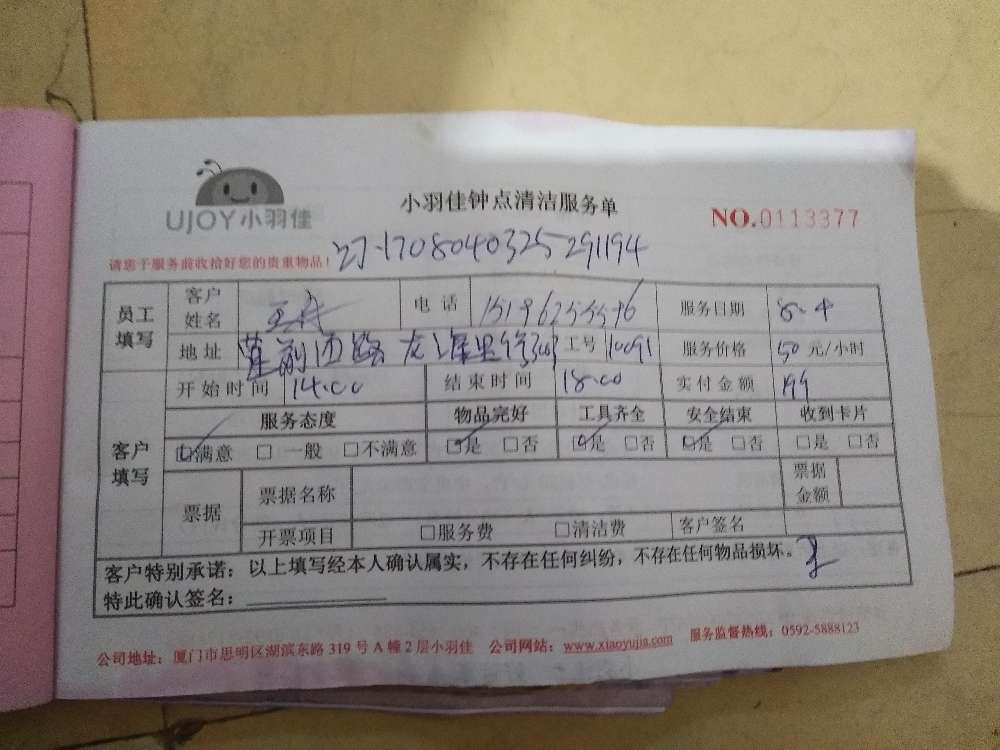 UJOY小羽佳
小羽佳钟点清洁服务单
NO.0113377
请您于服务前收拾好您的贵重物品!
1708040325291194
员工填写 客户姓名 电话 服务日期 8.4
地址 工号 10091 服务价格 50 元/小时
客户填写 开始时间 14:00 结束时间 18:00 实付金额 199
服务态度 物品完好 工具齐全 安全结束 收到卡片
☑满意 □ 一般 □不满意 ☑是 □否 ☑是 □否 ☑是 □否 □是 □否
票据 票据名称 票据金额
开票项目 □服务费 □清洁费 客户签名
客户特别承诺：以上填写经本人确认属实，不存在任何纠纷，不存在任何物品损坏。
特此确认签名：
公司地址：厦门市思明区湖滨东路 319 号 A 幢 2 层小羽佳 公司网站：www.xiaoyujia.com 服务监督热线：0592-5888123